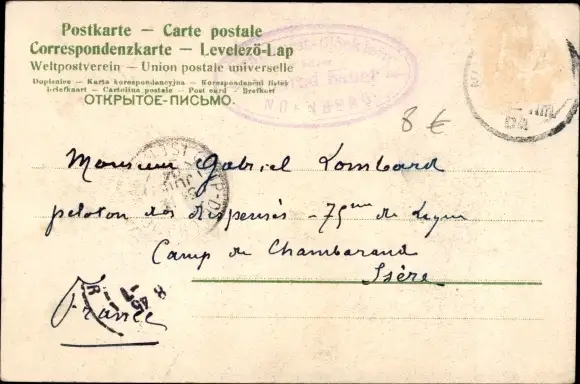 Postkarte — Carte postale
Correspondenzkarte — Levelező-Lap
Weltpostverein — Union postale universelle
Dopisnice — Karta korespondencyjna — Korespondenční lístek
briefkaart — Cartolina postale — Post card — Brefkort
ОТКРЫТОЕ-ПИСЬМО.
NÜRNBERG
8 €
Monsieur Gabriel Lombard
peloton des dispensés - 75ème de Ligne
Camp de Chambarand
Isère
France